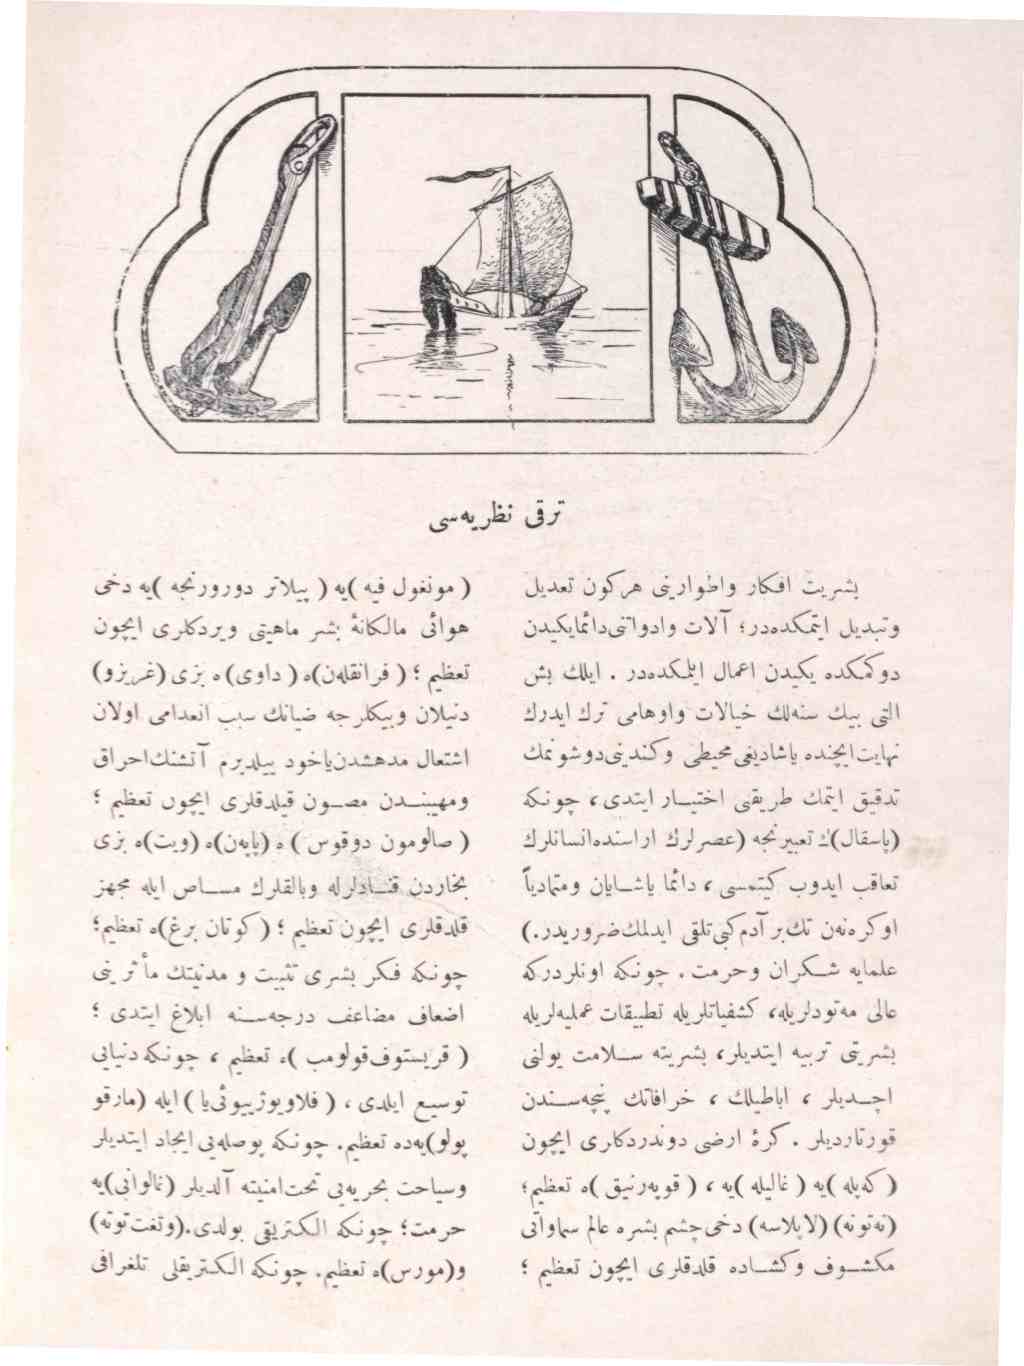 ترقی نظریه‌سی
بشریت افكار واطوارینی هركون تعدیل
وتبدیل ایتمكده‌در؛ آلات وادواتنی‌دائمایكیدن
دوكمكده یكیدن اعمال ایلمكده‌در . ایلك بش
التی بیك سنه‌لك خیالات واوهامی ترك ایدرك
نهایت‌ایچنده یاشادیغی‌محیطی وكندینی‌دوشونمك
تدقیق ایتمك طریقنی اختیار ایتدی، چونكه
(پاسقال)ك تعبیرنجه (عصرلرك اراسنده‌انسانلرك
تعاقب ایدوب كیتمسی ، دائما یاشایان ومتمادیاً
اوكره‌نه‌ن تك‌بر آدم‌كبی‌تلقی ایدلمك‌ضروریدر.)
علمایه شكران وحرمت . چونكه اونلردركه
عالی مه‌تودلریله، كشفیاتلریله تطبیقات عملیه‌لریله
بشریتی تربیه ایتدیلر، بشریته سلامت یولنی
اچدیلر ، اباطیلك ، خرافاتك پنجه‌سندن
قورتاردیلر . كرهٔ ارضی دوندردكاری ایچون
( كه‌پله )یه ( غالیله )یه ، ( قوپه‌رنیق )ه تعظیم؛
(نه‌وتونه) (لاپلاسه) دخی‌چشم بشره عالم سماواتی
مكشوف وكشاده قلدقلری ایچون تعظیم ؛
( مونغول فیه )یه ( پیلاتر دوروزنجه )یه دخی
هوائی مالكانهٔ بشر ماهیتی ویردكلری ایچون
تعظیم ؛ ( فرانقله‌ن)ه ( داوی)ه بزی (غریزو)
دنیلان وبیكلرجه ضیانك سبب انعدامی اولان
اشتعال مدهشدن‌یاخود ییلدیرم آتشنك‌احراق
ومهیبندن مصون قیلدقلری ایچون تعظیم ؛
( صالومون دوقوس ) ه (پاپه‌ن)ه (ویت)ه بزی
بخاردن قنادلرله وبالقلرك مساص ایله مجهز
قلدقلری ایچون تعظیم ؛ ( كوتان برغ)ه تعظیم؛
چونكه فكر بشری تثبیت و مدنیتك مأثرینی
اضعاف مضاعف درجه‌سنه ابلاغ ایتدی ؛
( قریستوف‌قولومب )ه تعظیم ، چونكه دنیایی
توسیع ایلدی ، ( فلاویوژییوئی‌یا ) ایله (مارقو
پولو)یه‌ده تعظیم. چونكه پوصله‌یی ایجاد ایتدیلر
وسیاحت بحریه‌یی تحت‌امنیته آلدیلر (غالوانی)یه
حرمت؛ چونكه الكتریقی بولدی.(وتغت‌توته)
و(مورس)ه تعظیم. چونكه الكتریقلی تلغرافی